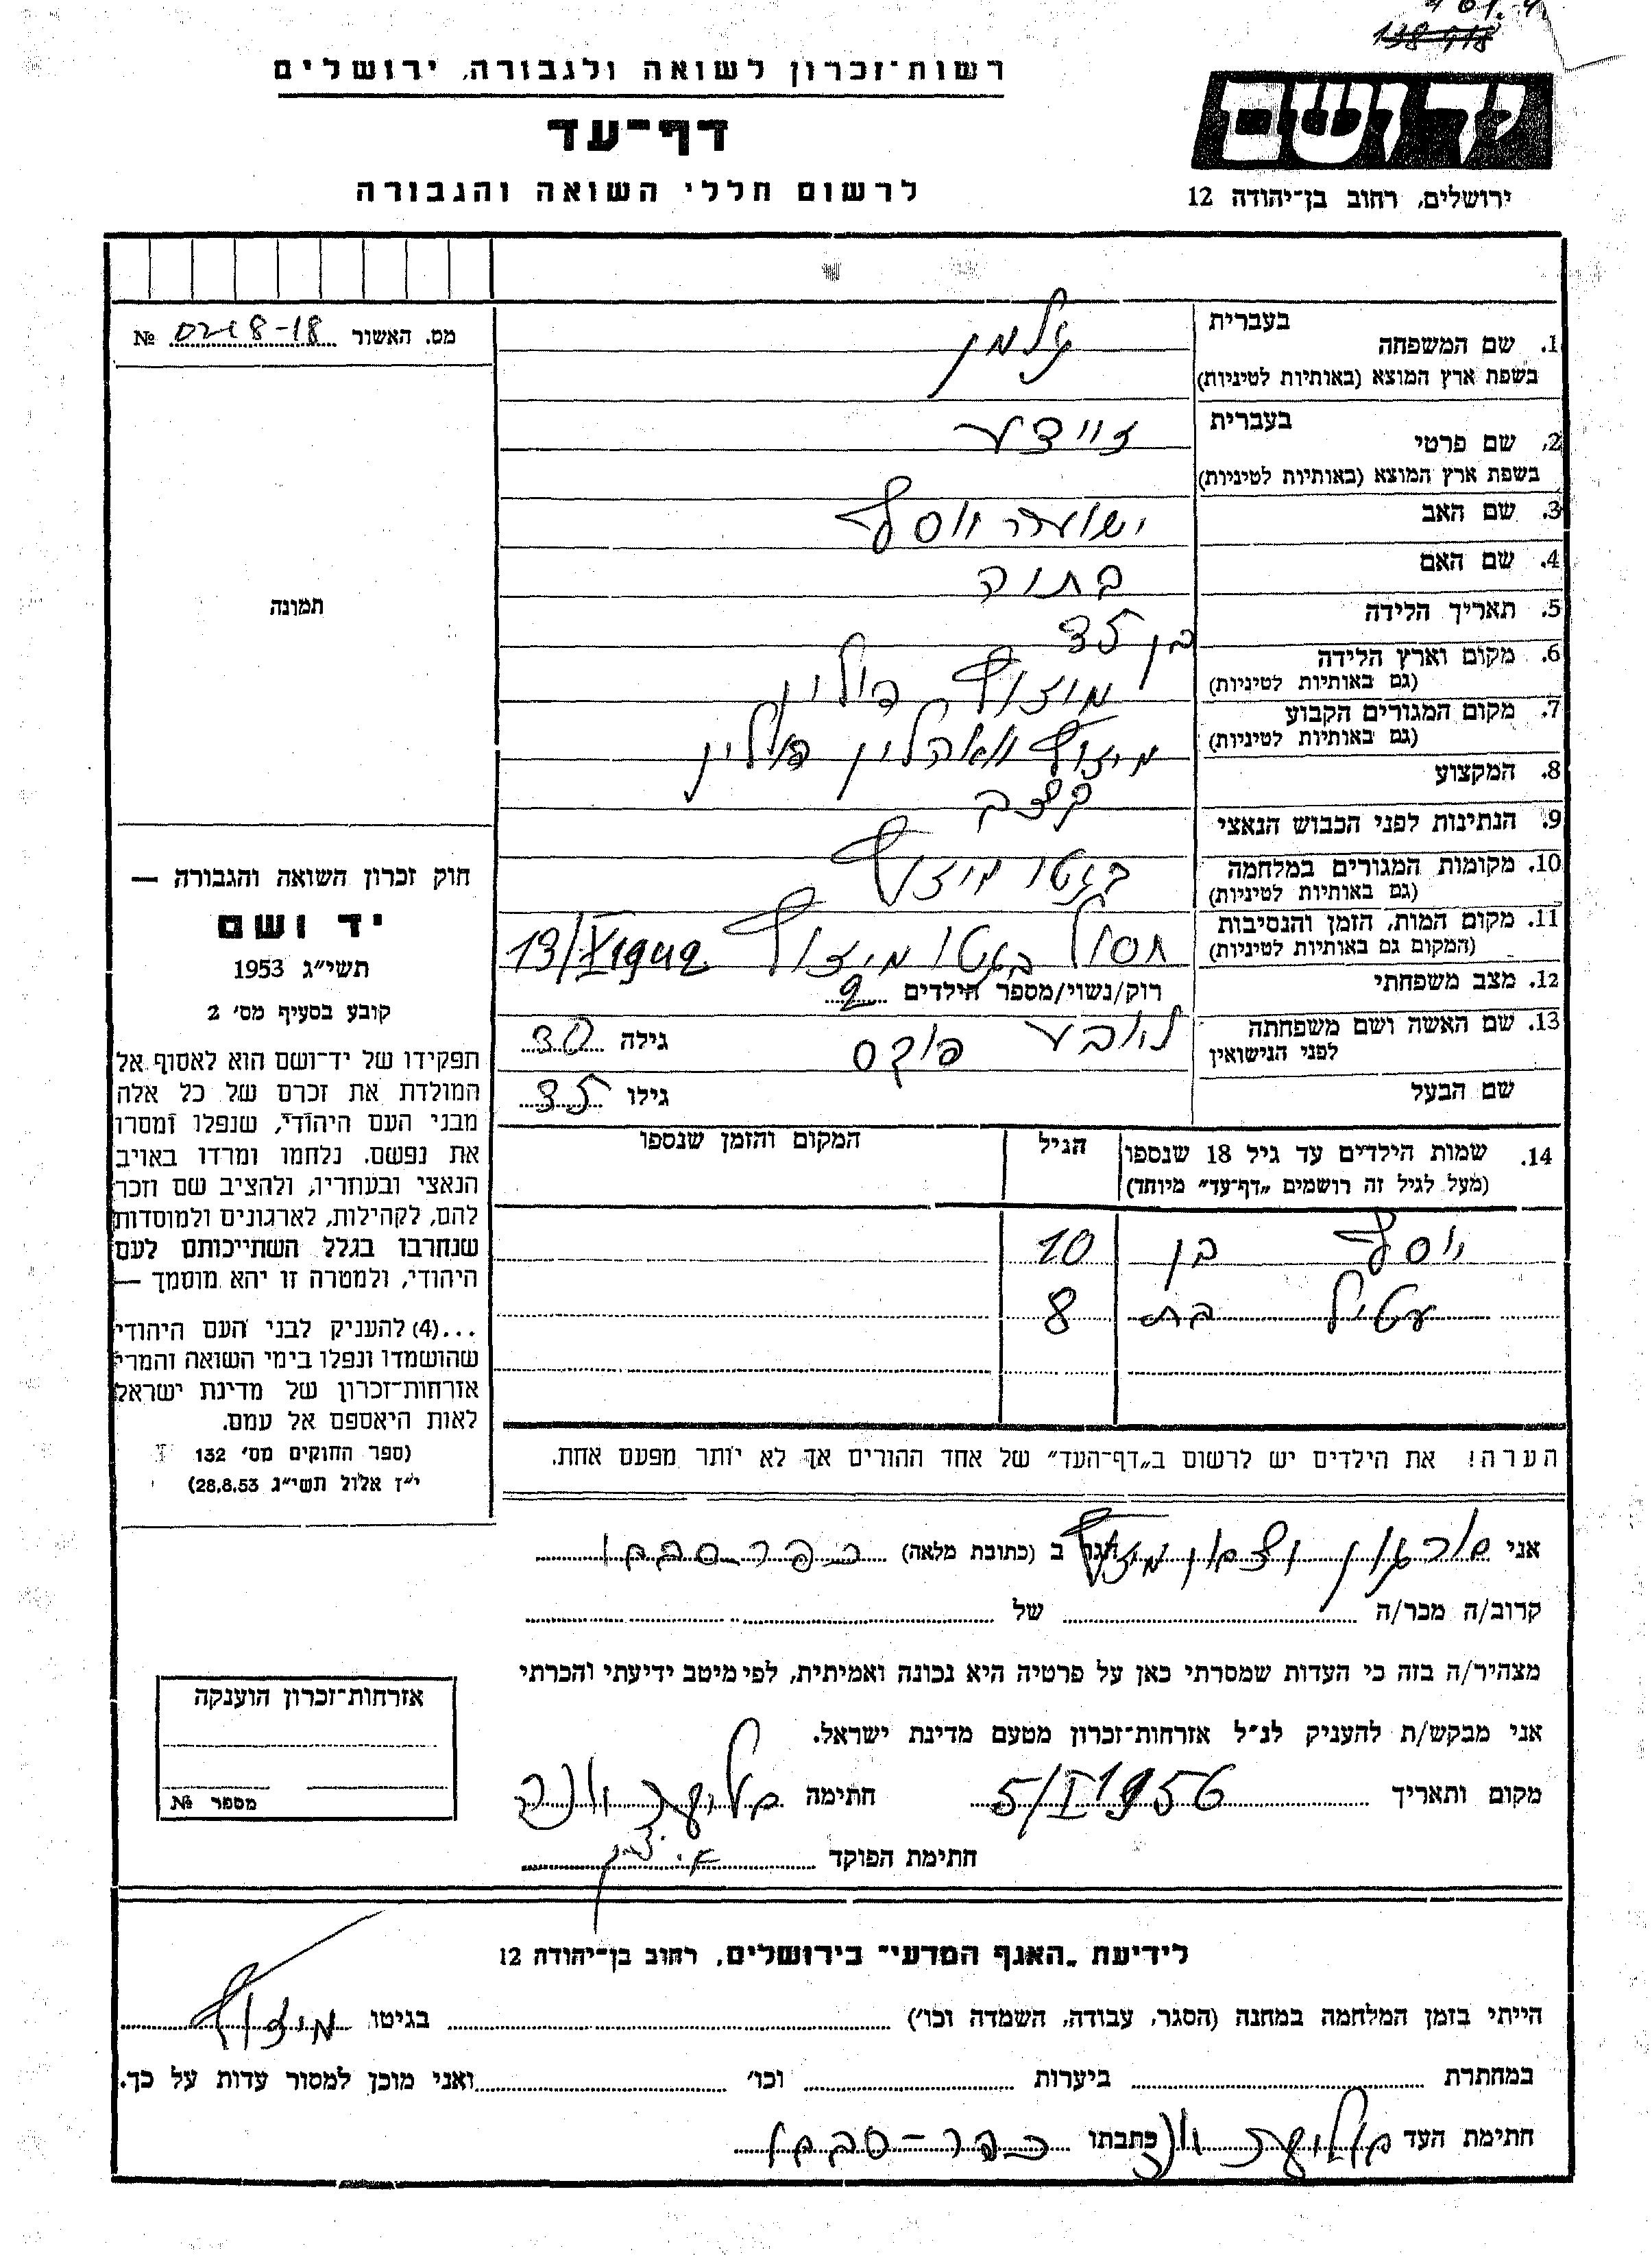 138918
רשות־זכרון לשואה ולגבורה, ירושלים
דף־עד
לרשום חללי השואה והגבורה
יד ושם
ירושלים, רחוב בן־יהודה 12
מס. האשור 0218-18 №
תמונה
חוק זכרון השואה והגבורה —
יד ושם
תשי״ג 1953
קובע בסעיף מס׳ 2
תפקידו של יד־ושם הוא לאסוף אל
המולדת את זכרם של כל אלה
מבני העם היהודי, שנפלו ומסרו
את נפשם, נלחמו ומרדו באויב
הנאצי ובעוזריו, ולהציב שם וזכר
להם, לקהילות, לארגונים ולמוסדות
שנחרבו בגלל השתייכותם לעם
היהודי, ולמטרה זו יהא מוסמך —
...(4) להעניק לבני העם היהודי
שהושמדו ונפלו בימי השואה והמרי
אזרחות־זכרון של מדינת ישראל
לאות היאספם אל עמם.
(ספר החוקים מס׳ 132
י״ז אלול תשי״ג 28.8.53)
1. שם המשפחה בעברית גלמן
בשפת ארץ המוצא (באותיות לטיניות)
2. שם פרטי בעברית זיידע
בשפת ארץ המוצא (באותיות לטיניות)
3. שם האב יוסף
4. שם האם
5. תאריך הלידה בן 35
6. מקום וארץ הלידה מיזוץ פולין
(גם באותיות לטיניות)
7. מקום המגורים הקבוע מיזוץ וואהלין פולין
(גם באותיות לטיניות)
8. המקצוע קצב
9. הנתינות לפני הכבוש הנאצי
10. מקומות המגורים במלחמה בגטו מיזוץ
(גם באותיות לטיניות)
11. מקום המות, הזמן והנסיבות חסול בגטו מיזוץ 13/X 1942
(המקום גם באותיות לטיניות)
12. מצב משפחתי רוק/נשוי/מספר הילדים 2
13. שם האשה ושם משפחתה ליובע פוקס גילה 30
לפני הנישואין
שם הבעל גילו 35
14. שמות הילדים עד גיל 18 שנספו הגיל המקום והזמן שנספו
(מעל לגיל זה רושמים „דף־עד״ מיוחד)
יוסף בן 10
עטיל בת 8
הערה! את הילדים יש לרשום ב„דף־העד״ של אחד ההורים אך לא יותר מפעם אחת.
אני ארגון יוצאי מיזוץ הגר ב (כתובת מלאה) כפר-סבא
קרוב/ה מכר/ה של
מצהיר/ה בזה כי העדות שמסרתי כאן על פרטיה היא נכונה ואמיתית, לפי מיטב ידיעתי והכרתי
אני מבקש/ת להעניק לנ״ל אזרחות־זכרון מטעם מדינת ישראל.
מקום ותאריך 5/I 1956 חתימה
חתימת הפוקד
אזרחות־זכרון הוענקה
מספר №
לידיעת „האגף המדעי״ בירושלים, רחוב בן־יהודה 12
הייתי בזמן המלחמה במחנה (הסגר, עבודה, השמדה וכו׳) בגיטו מיזוץ
במחתרת ביערות וכו׳ ואני מוכן למסור עדות על כך.
חתימת העד כתבתו כפר-סבא